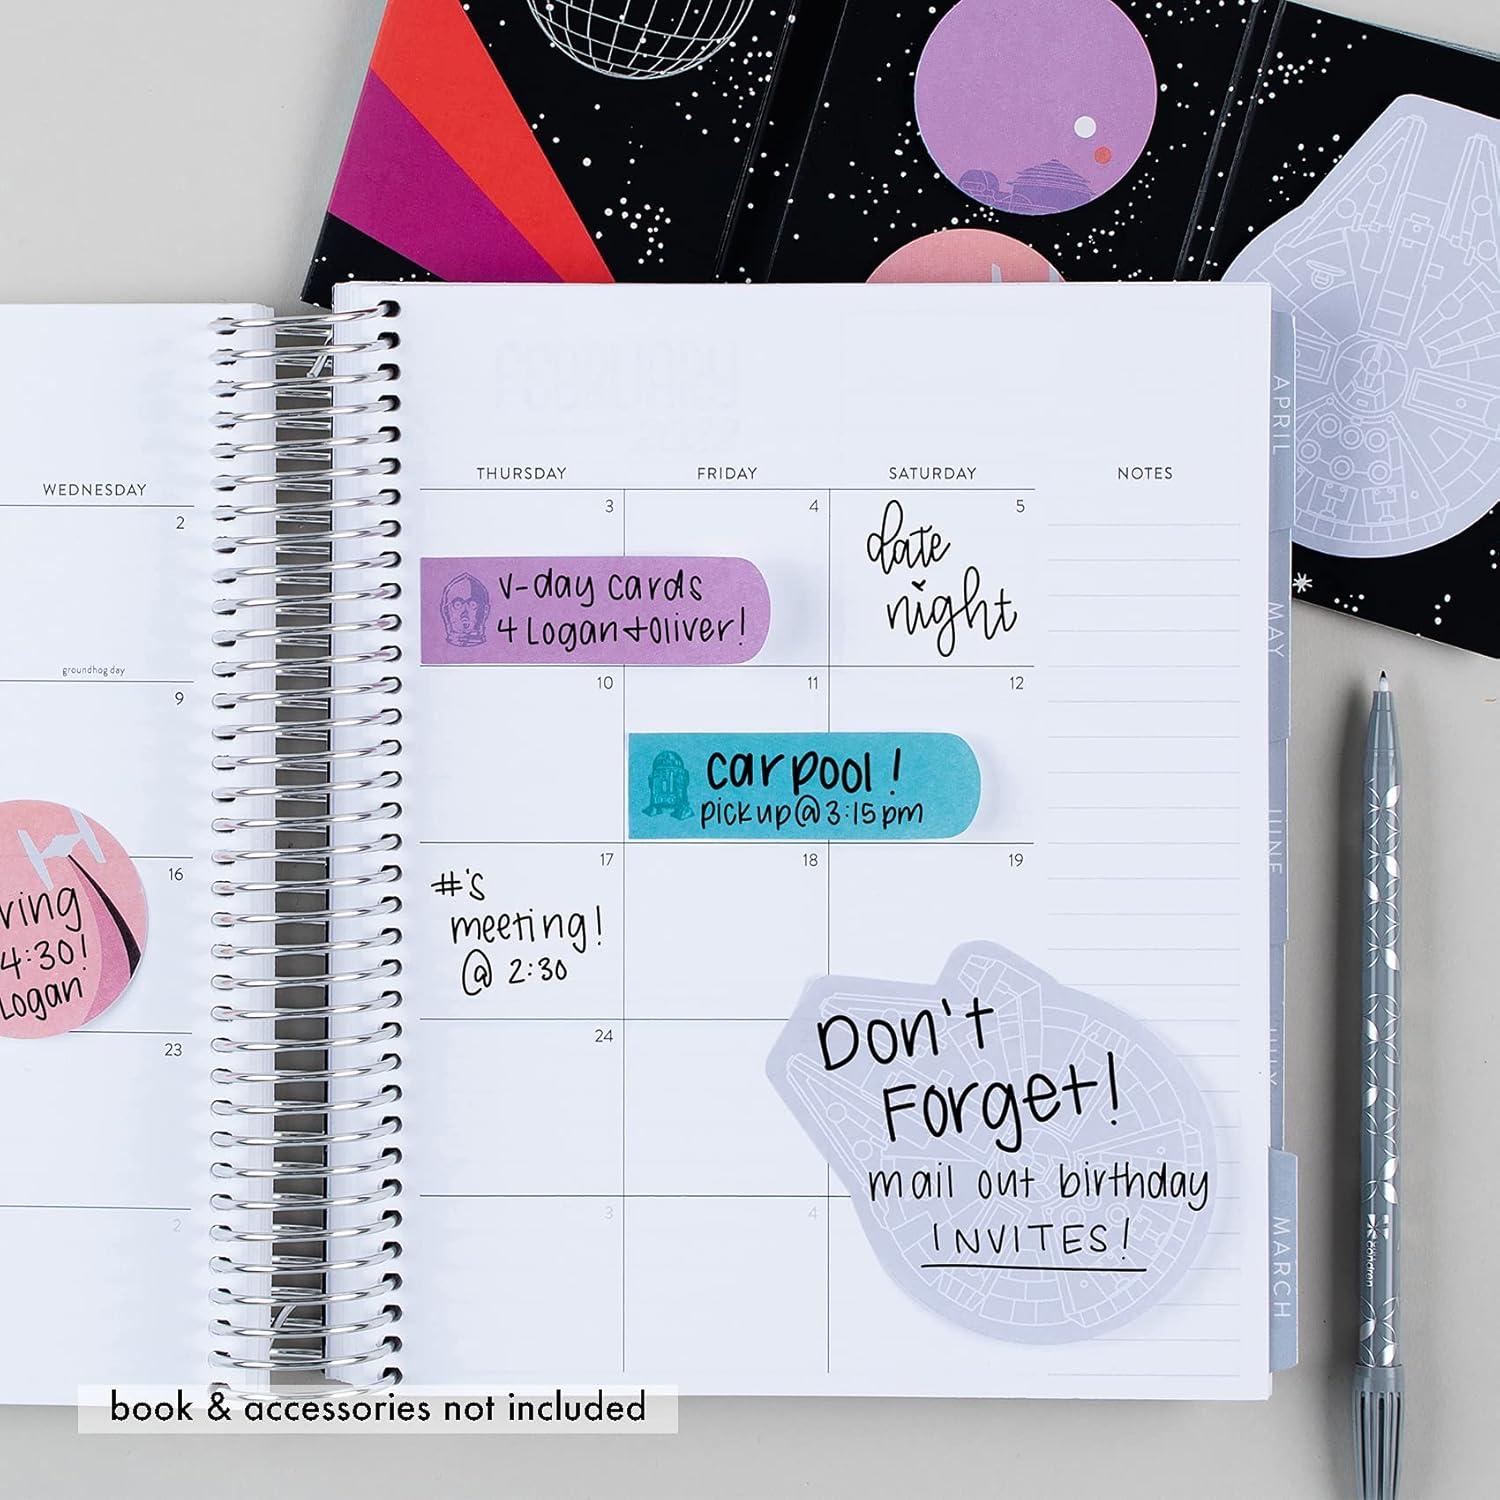 FEBRUARY
WEDNESDAY
THURSDAY
FRIDAY
SATURDAY
NOTES
2
3
4
5
date
night
v-day cards
4 Logan + Oliver!
groundhog day
9
10
11
12
car pool!
pick up @ 3:15 pm
16
17
18
19
4:30!
Logan
#'s
meeting!
@ 2:30
23
24
Don't
Forget!
mail out birthday
INVITES!
2
3
4
APRIL
MAY
JUNE
JULY
MARCH
book & accessories not included